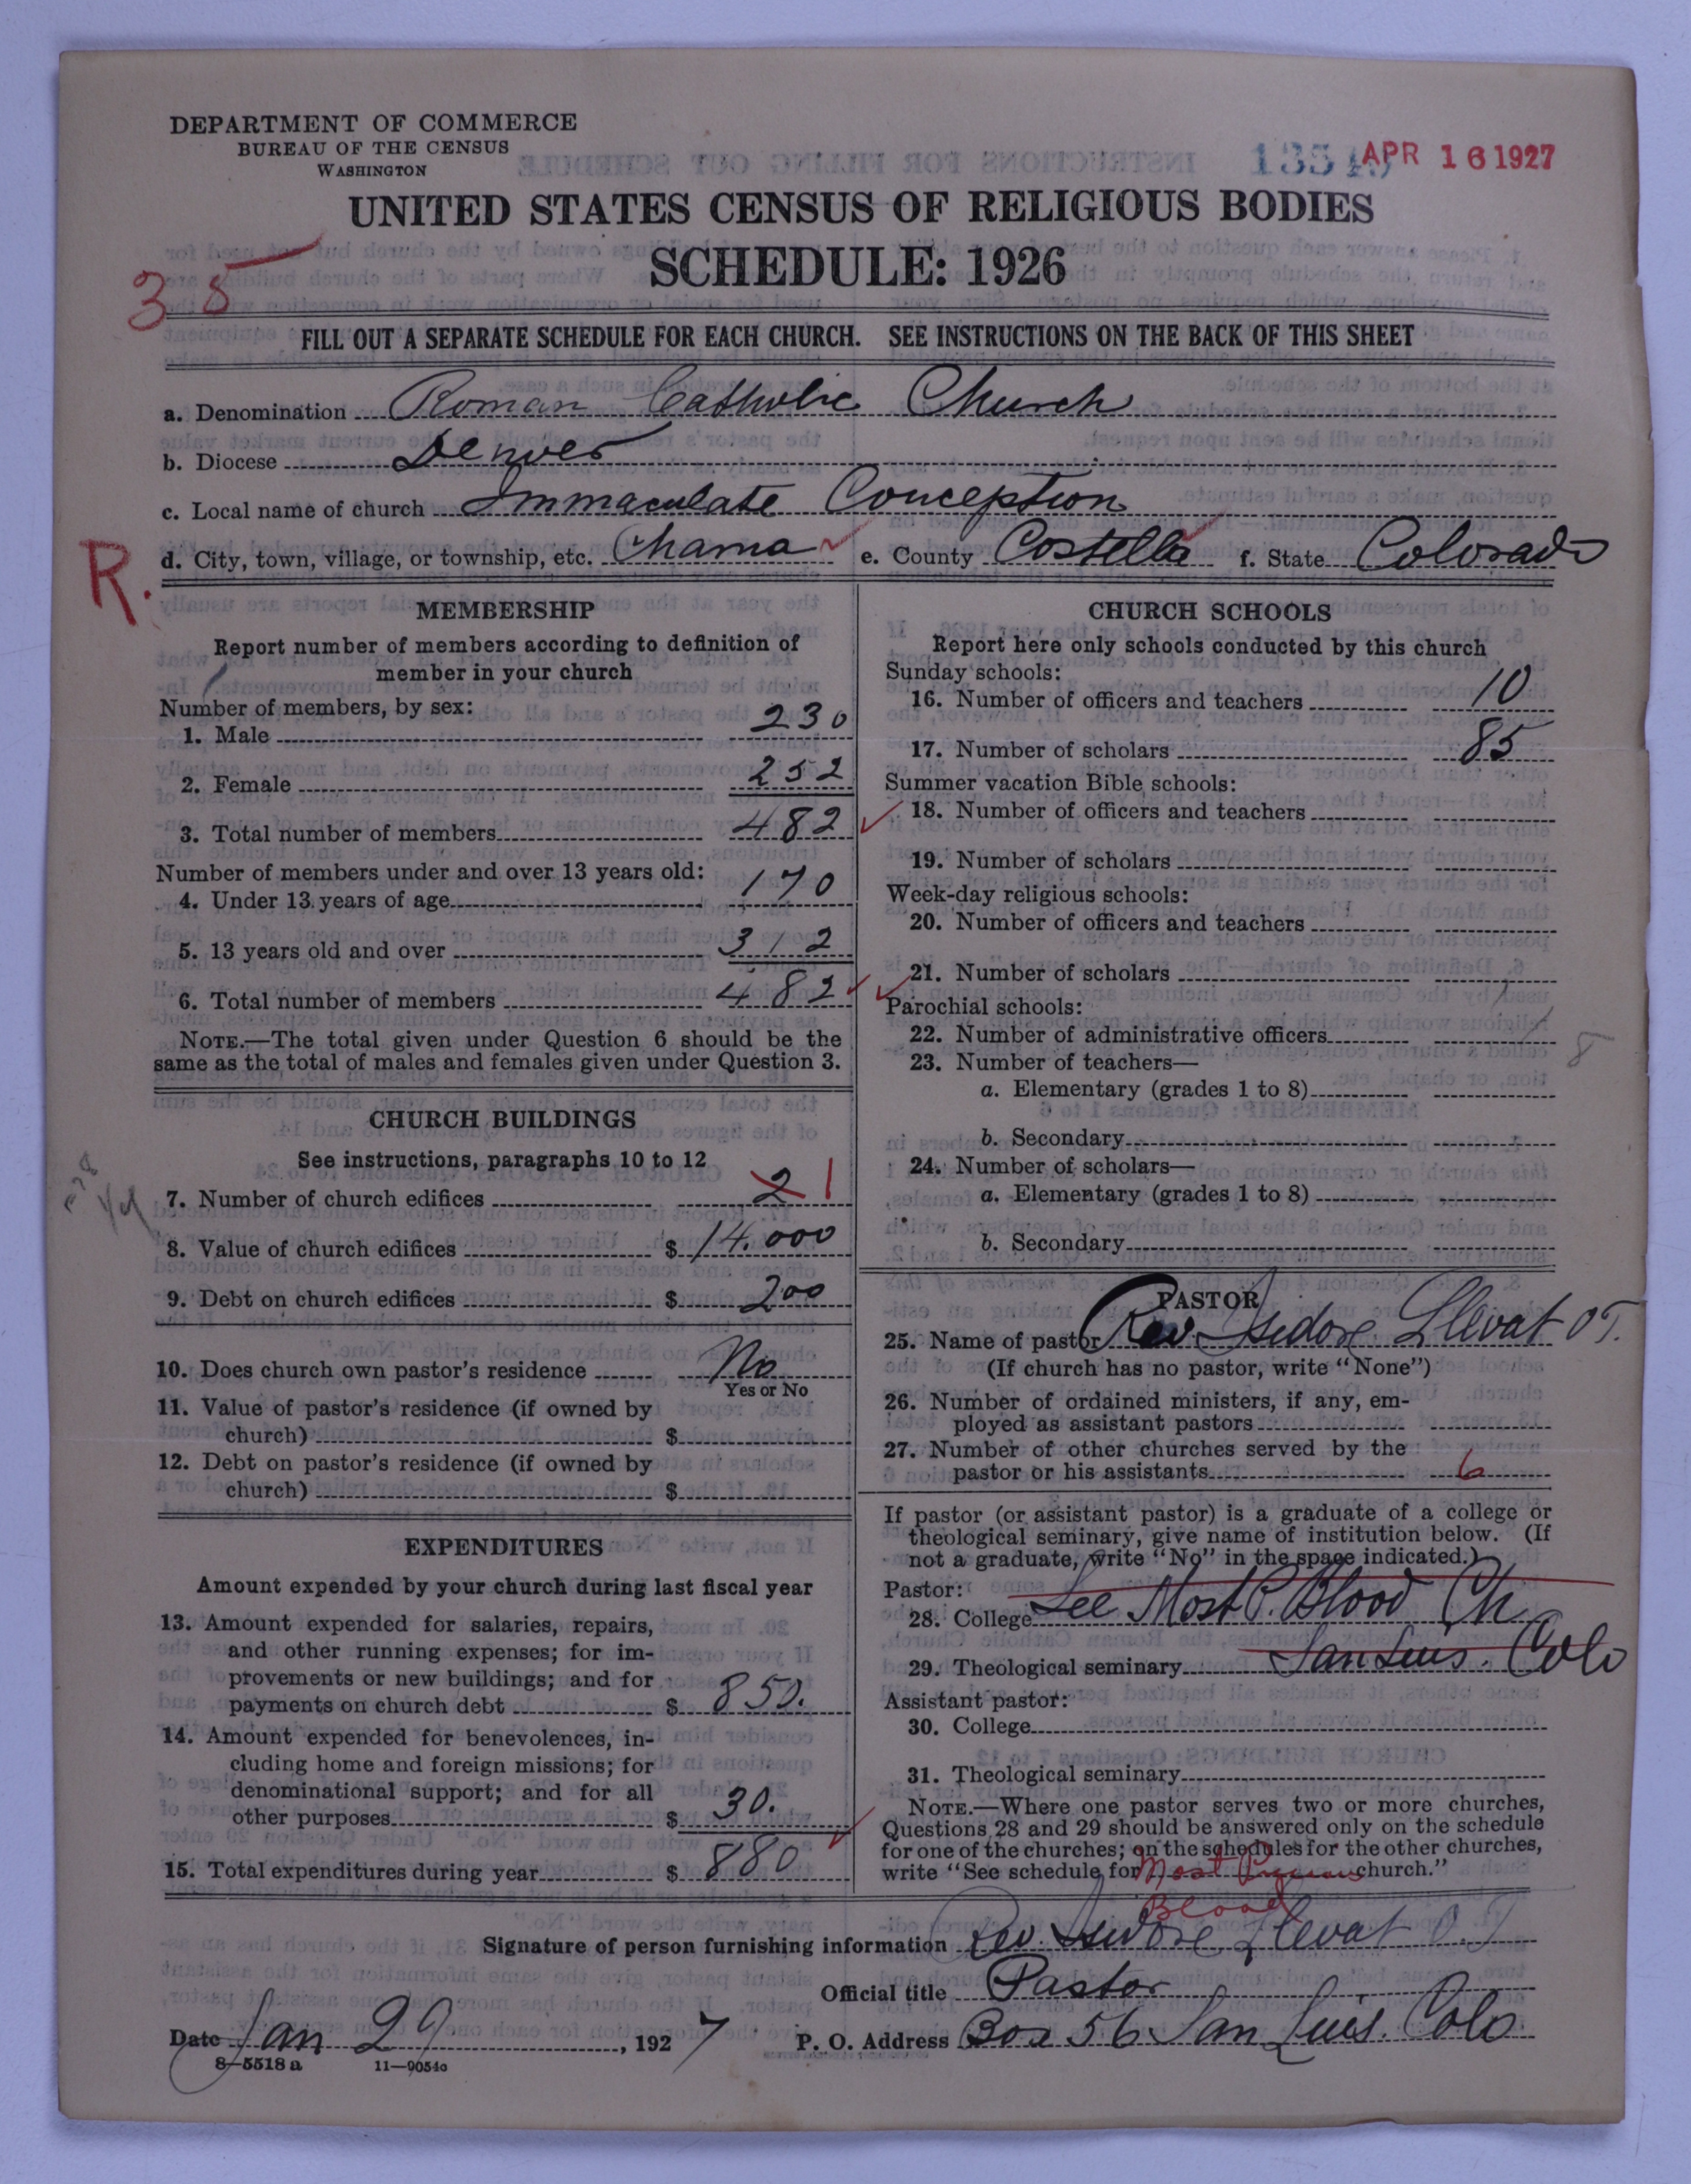 DEPARTMENT OF COMMERCE
BUREAU OF THE CENSUS
WASHINGTON
APR 16 1927
UNITED STATES CENSUS OF RELIGIOUS BODIES
SCHEDULE: 1926
35
FILL OUT A SEPARATE SCHEDULE FOR EACH CHURCH. SEE INSTRUCTIONS ON THE BACK OF THIS SHEET
a. Denomination Roman Catholic Church
b. Diocese Denver
c. Local name of church Immaculate Conception
R.
d. City, town, village, or township, etc. Chama e. County Costella f. State Colorado
MEMBERSHIP
Report number of members according to definition of
member in your church
Number of members, by sex:
1. Male 230
2. Female 252
3. Total number of members 482
Number of members under and over 13 years old:
4. Under 13 years of age 170
5. 13 years old and over 312
6. Total number of members 482
NOTE.—The total given under Question 6 should be the
same as the total of males and females given under Question 3.
CHURCH BUILDINGS
See instructions, paragraphs 10 to 12
7. Number of church edifices 2 1
8. Value of church edifices $ 14.000
9. Debt on church edifices $ 200
10. Does church own pastor's residence No
Yes or No
11. Value of pastor's residence (if owned by
church) $
12. Debt on pastor's residence (if owned by
church) $
EXPENDITURES
Amount expended by your church during last fiscal year
13. Amount expended for salaries, repairs,
and other running expenses; for im-
provements or new buildings; and for
payments on church debt $ 850.
14. Amount expended for benevolences, in-
cluding home and foreign missions; for
denominational support; and for all
other purposes $ 30.
15. Total expenditures during year $ 880
CHURCH SCHOOLS
Report here only schools conducted by this church
Sunday schools:
16. Number of officers and teachers 10
17. Number of scholars 85
Summer vacation Bible schools:
18. Number of officers and teachers
19. Number of scholars
Week-day religious schools:
20. Number of officers and teachers
21. Number of scholars
Parochial schools:
22. Number of administrative officers
23. Number of teachers—
a. Elementary (grades 1 to 8)
b. Secondary
24. Number of scholars—
a. Elementary (grades 1 to 8)
b. Secondary
PASTOR
25. Name of pastor Rev. Isidore Llevat O T.
(If church has no pastor, write "None")
26. Number of ordained ministers, if any, em-
ployed as assistant pastors
27. Number of other churches served by the
pastor or his assistants 6
If pastor (or assistant pastor) is a graduate of a college or
theological seminary, give name of institution below. (If
not a graduate, write "No" in the space indicated.)
Pastor:
28. College See Most P. Blood Ch
29. Theological seminary San Luis. Colo
Assistant pastor:
30. College
31. Theological seminary
NOTE.—Where one pastor serves two or more churches,
Questions 28 and 29 should be answered only on the schedule
for one of the churches; on the schedules for the other churches,
write "See schedule for Most Precious church."
Blood
Signature of person furnishing information Rev. Isidore Llevat O.T
Official title Pastor
Date Jan 29, 1927 P. O. Address Box 56 San Luis. Colo
8—5518 a 11—9054o